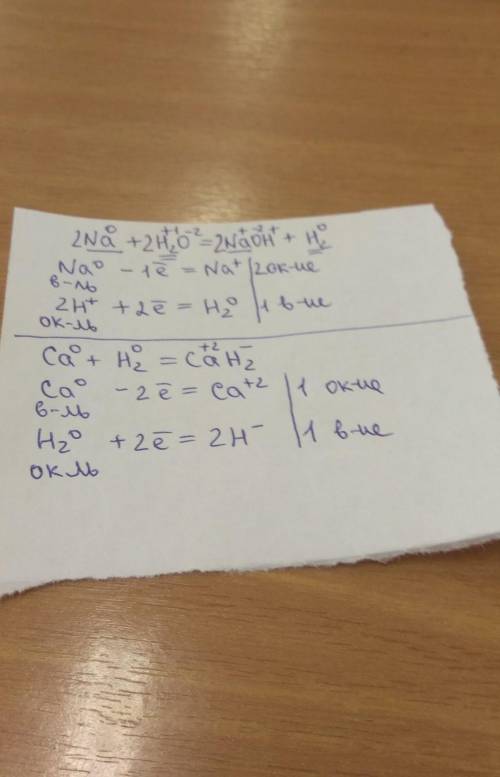 2Na⁰ + 2H₂⁺¹O⁻² = 2Na⁺O⁻²H⁺ + H₂⁰
Na⁰ - 1ē = Na⁺ | 2 ок-ие
в-ль
2H⁺ + 2ē = H₂⁰ | 1 в-ие
ок-ль
Ca⁰ + H₂⁰ = Ca⁺²H₂⁻
Ca⁰ - 2ē = Ca⁺² | 1 ок-ие
в-ль
H₂⁰ + 2ē = 2H⁻ | 1 в-ие
ок ль